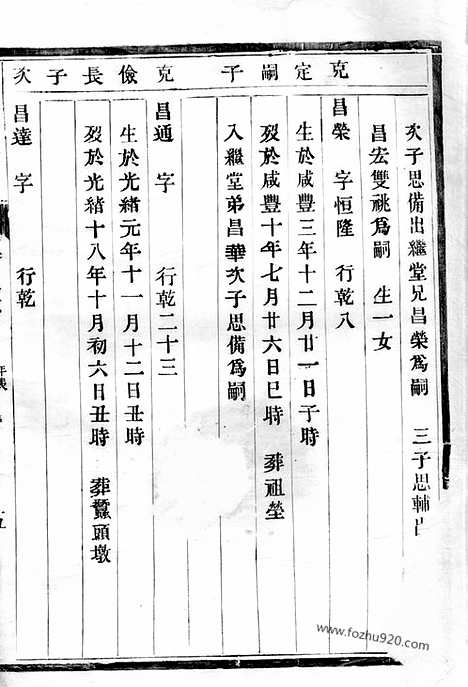 次子思備出繼堂兄昌榮爲嗣 三子思輔出
昌宏雙祧爲嗣 生一女
克定嗣子
昌榮 字恒隆 行乾八
生於咸豐三年十二月廿一日子時
歿於咸豐十年七月廿六日巳時 葬祖塋
入繼堂弟昌華次子思備爲嗣
克儉長子
昌通 字 行乾二十三
生於光緒元年十一月十二日丑時
歿於光緒十八年十月初六日丑時 葬鰲頭墩
次
昌達 字 行乾
www.fozhu920.com